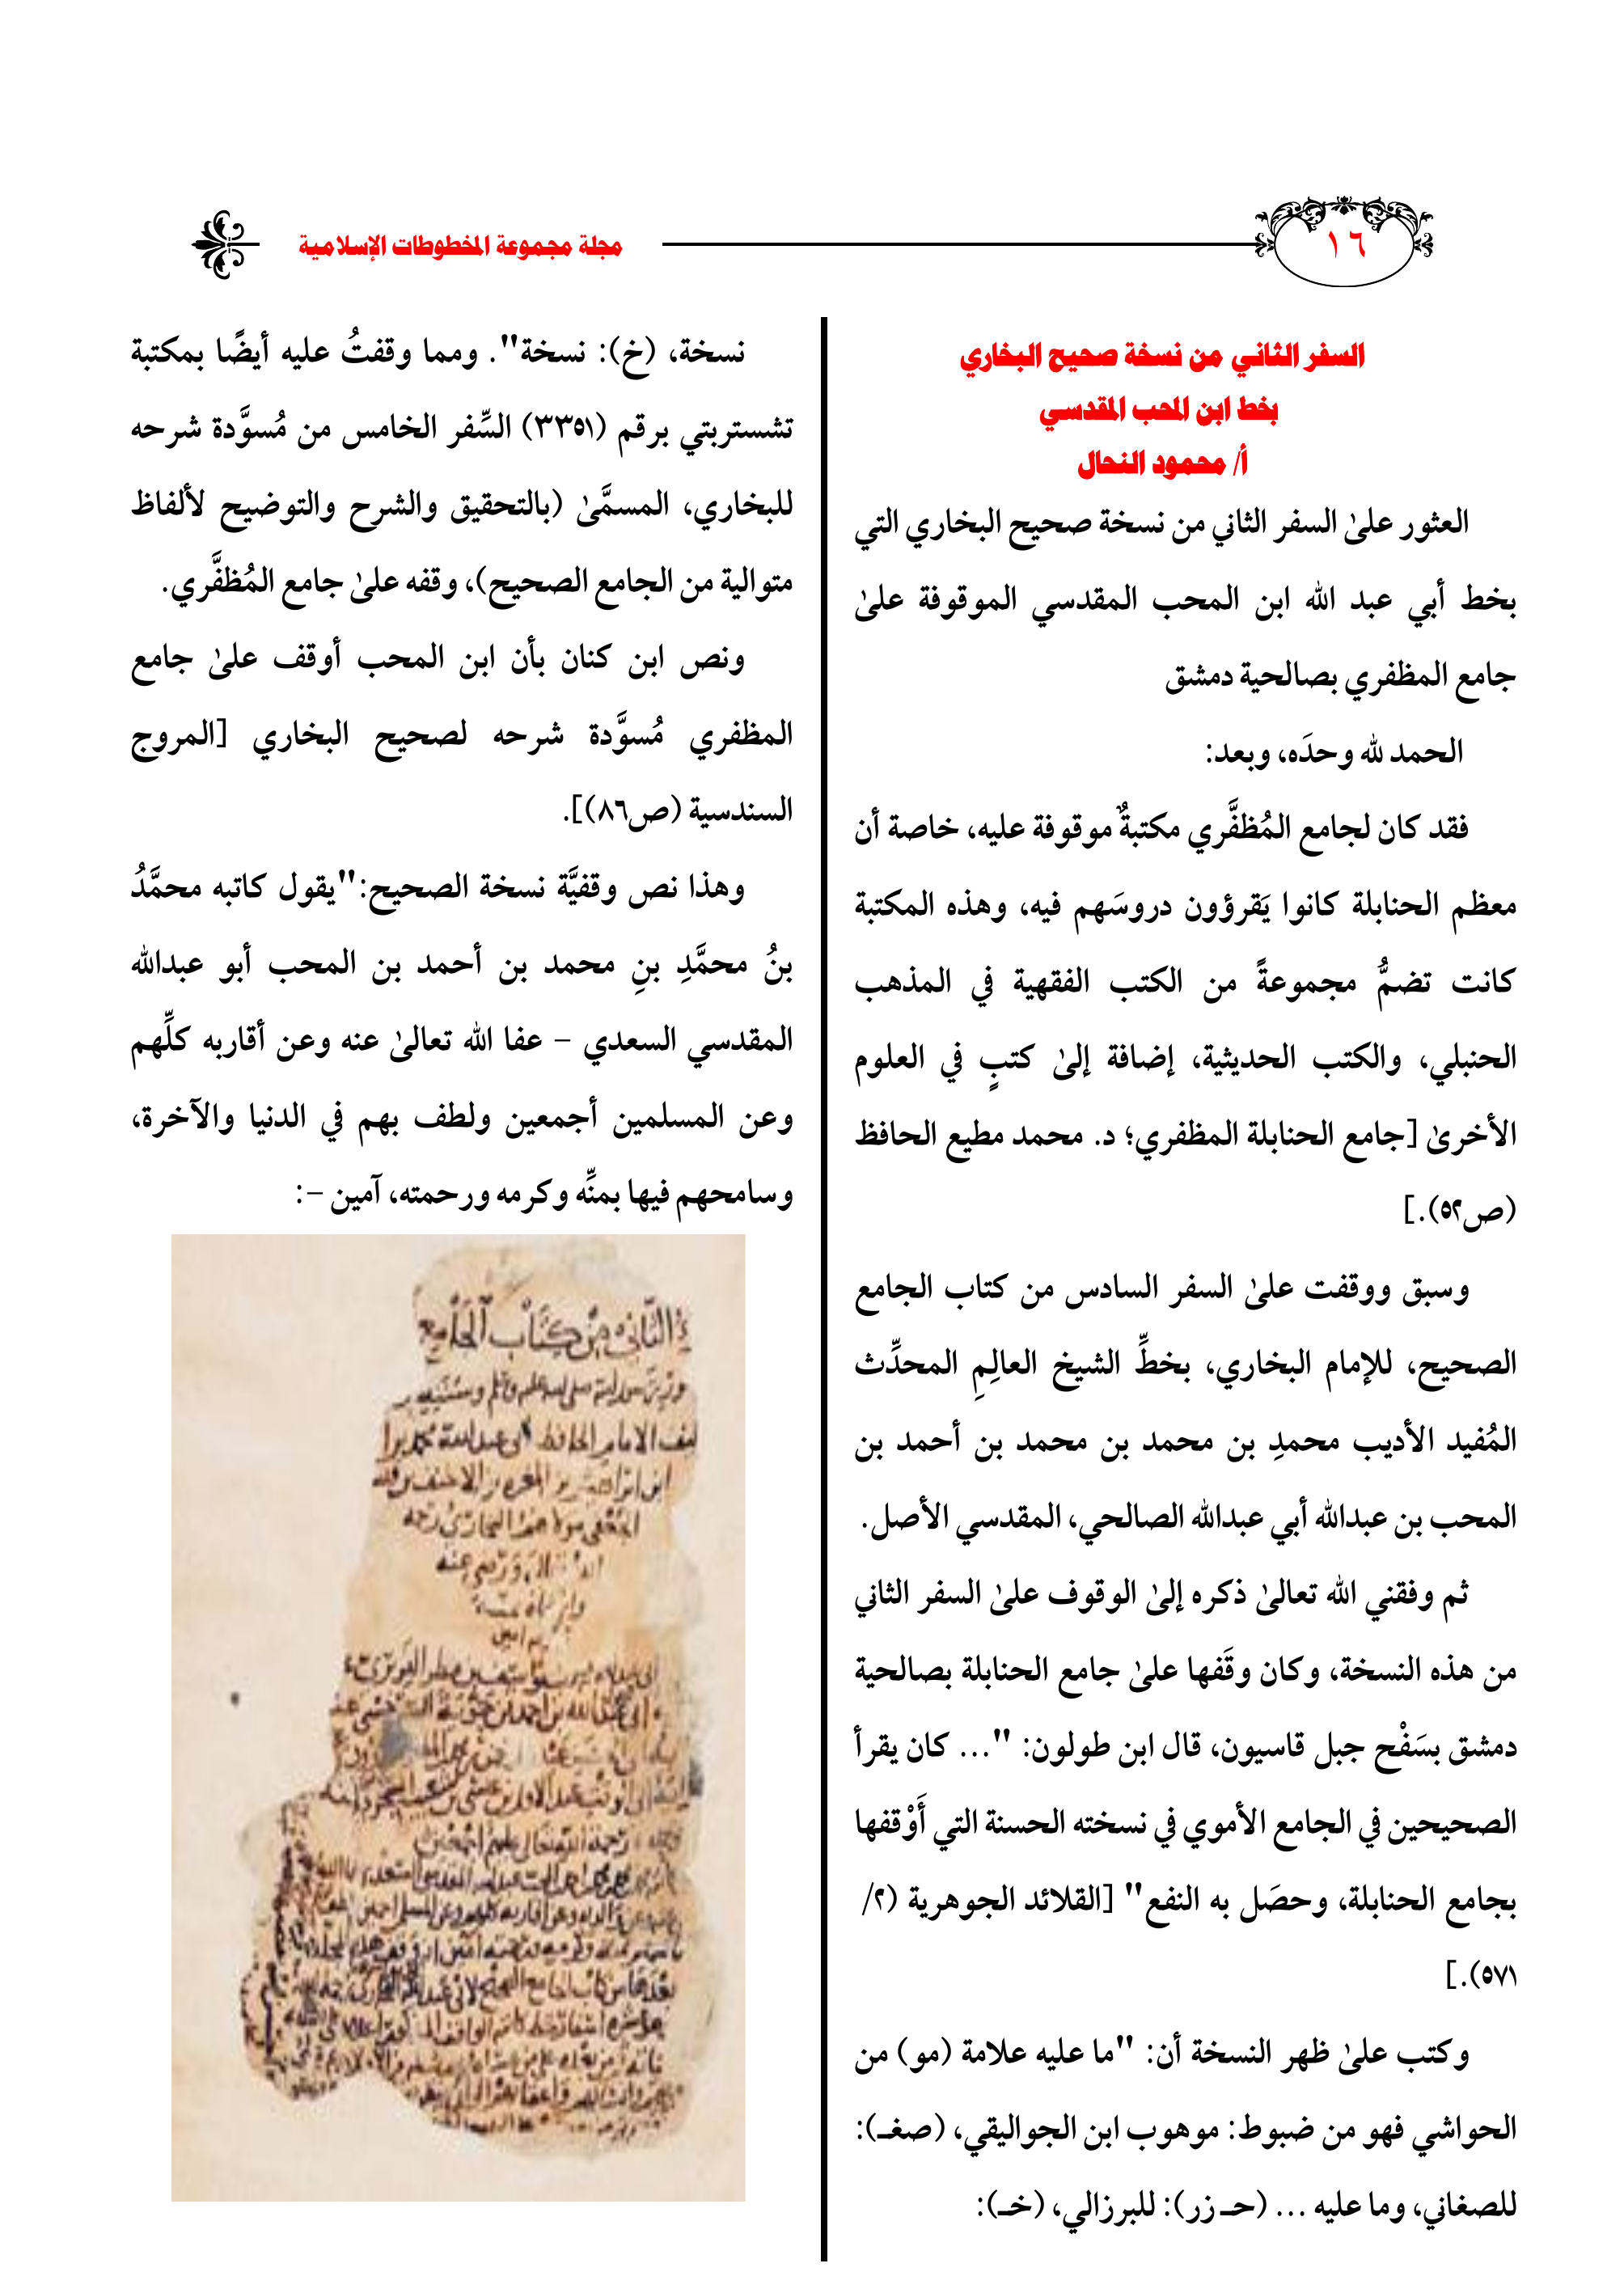 ١٦
مجلة مجموعة المخطوطات الإسلامية
السفر الثاني من نسخة صحيح البخاري
بخط ابن المحب المقدسي
أ/ محمود النحال
العثور علىٰ السفر الثاني من نسخة صحيح البخاري التي
بخط أبي عبد الله ابن المحب المقدسي الموقوفة علىٰ
جامع المظفري بصالحية دمشق
الحمد لله وحدَه، وبعد:
فقد كان لجامع المُظفَّري مكتبةٌ موقوفة عليه، خاصة أن
معظم الحنابلة كانوا يَقرؤون دروسَهم فيه، وهذه المكتبة
كانت تضمُّ مجموعةً من الكتب الفقهية في المذهب
الحنبلي، والكتب الحديثية، إضافة إلىٰ كتبٍ في العلوم
الأخرىٰ [جامع الحنابلة المظفري؛ د. محمد مطيع الحافظ
(ص٥٢).]
وسبق ووقفت علىٰ السفر السادس من كتاب الجامع
الصحيح، للإمام البخاري، بخطِّ الشيخ العالِمِ المحدِّث
المُفيد الأديب محمدِ بن محمد بن محمد بن أحمد بن
المحب بن عبدالله أبي عبدالله الصالحي، المقدسي الأصل.
ثم وفقني الله تعالىٰ ذكره إلىٰ الوقوف علىٰ السفر الثاني
من هذه النسخة، وكان وقَفها علىٰ جامع الحنابلة بصالحية
دمشق بسَفْح جبل قاسيون، قال ابن طولون: "... كان يقرأ
الصحيحين في الجامع الأموي في نسخته الحسنة التي أَوْقفها
بجامع الحنابلة، وحصَل به النفع" [القلائد الجوهرية (٢/
٥٧١).]
وكتب علىٰ ظهر النسخة أن: "ما عليه علامة (مو) من
الحواشي فهو من ضبوط: موهوب ابن الجواليقي، (صغـ):
للصغاني، وما عليه ... (حـ زر): للبرزالي، (خـ):
نسخة، (خ): نسخة". ومما وقفتُ عليه أيضًا بمكتبة
تشستربتي برقم (٣٣٥١) السِّفر الخامس من مُسوَّدة شرحه
للبخاري، المسمَّىٰ (بالتحقيق والشرح والتوضيح لألفاظ
متوالية من الجامع الصحيح)، وقفه علىٰ جامع المُظفَّري.
ونص ابن كنان بأن ابن المحب أوقف علىٰ جامع
المظفري مُسوَّدة شرحه لصحيح البخاري [المروج
السندسية (ص٨٦)].
وهذا نص وقفيَّة نسخة الصحيح:"يقول كاتبه محمَّدُ
بنُ محمَّدِ بنِ محمد بن أحمد بن المحب أبو عبدالله
المقدسي السعدي – عفا الله تعالىٰ عنه وعن أقاربه كلِّهم
وعن المسلمين أجمعين ولطف بهم في الدنيا والآخرة،
وسامحهم فيها بمنِّه وكرمه ورحمته، آمين –:
الثاني من كتاب الجامع